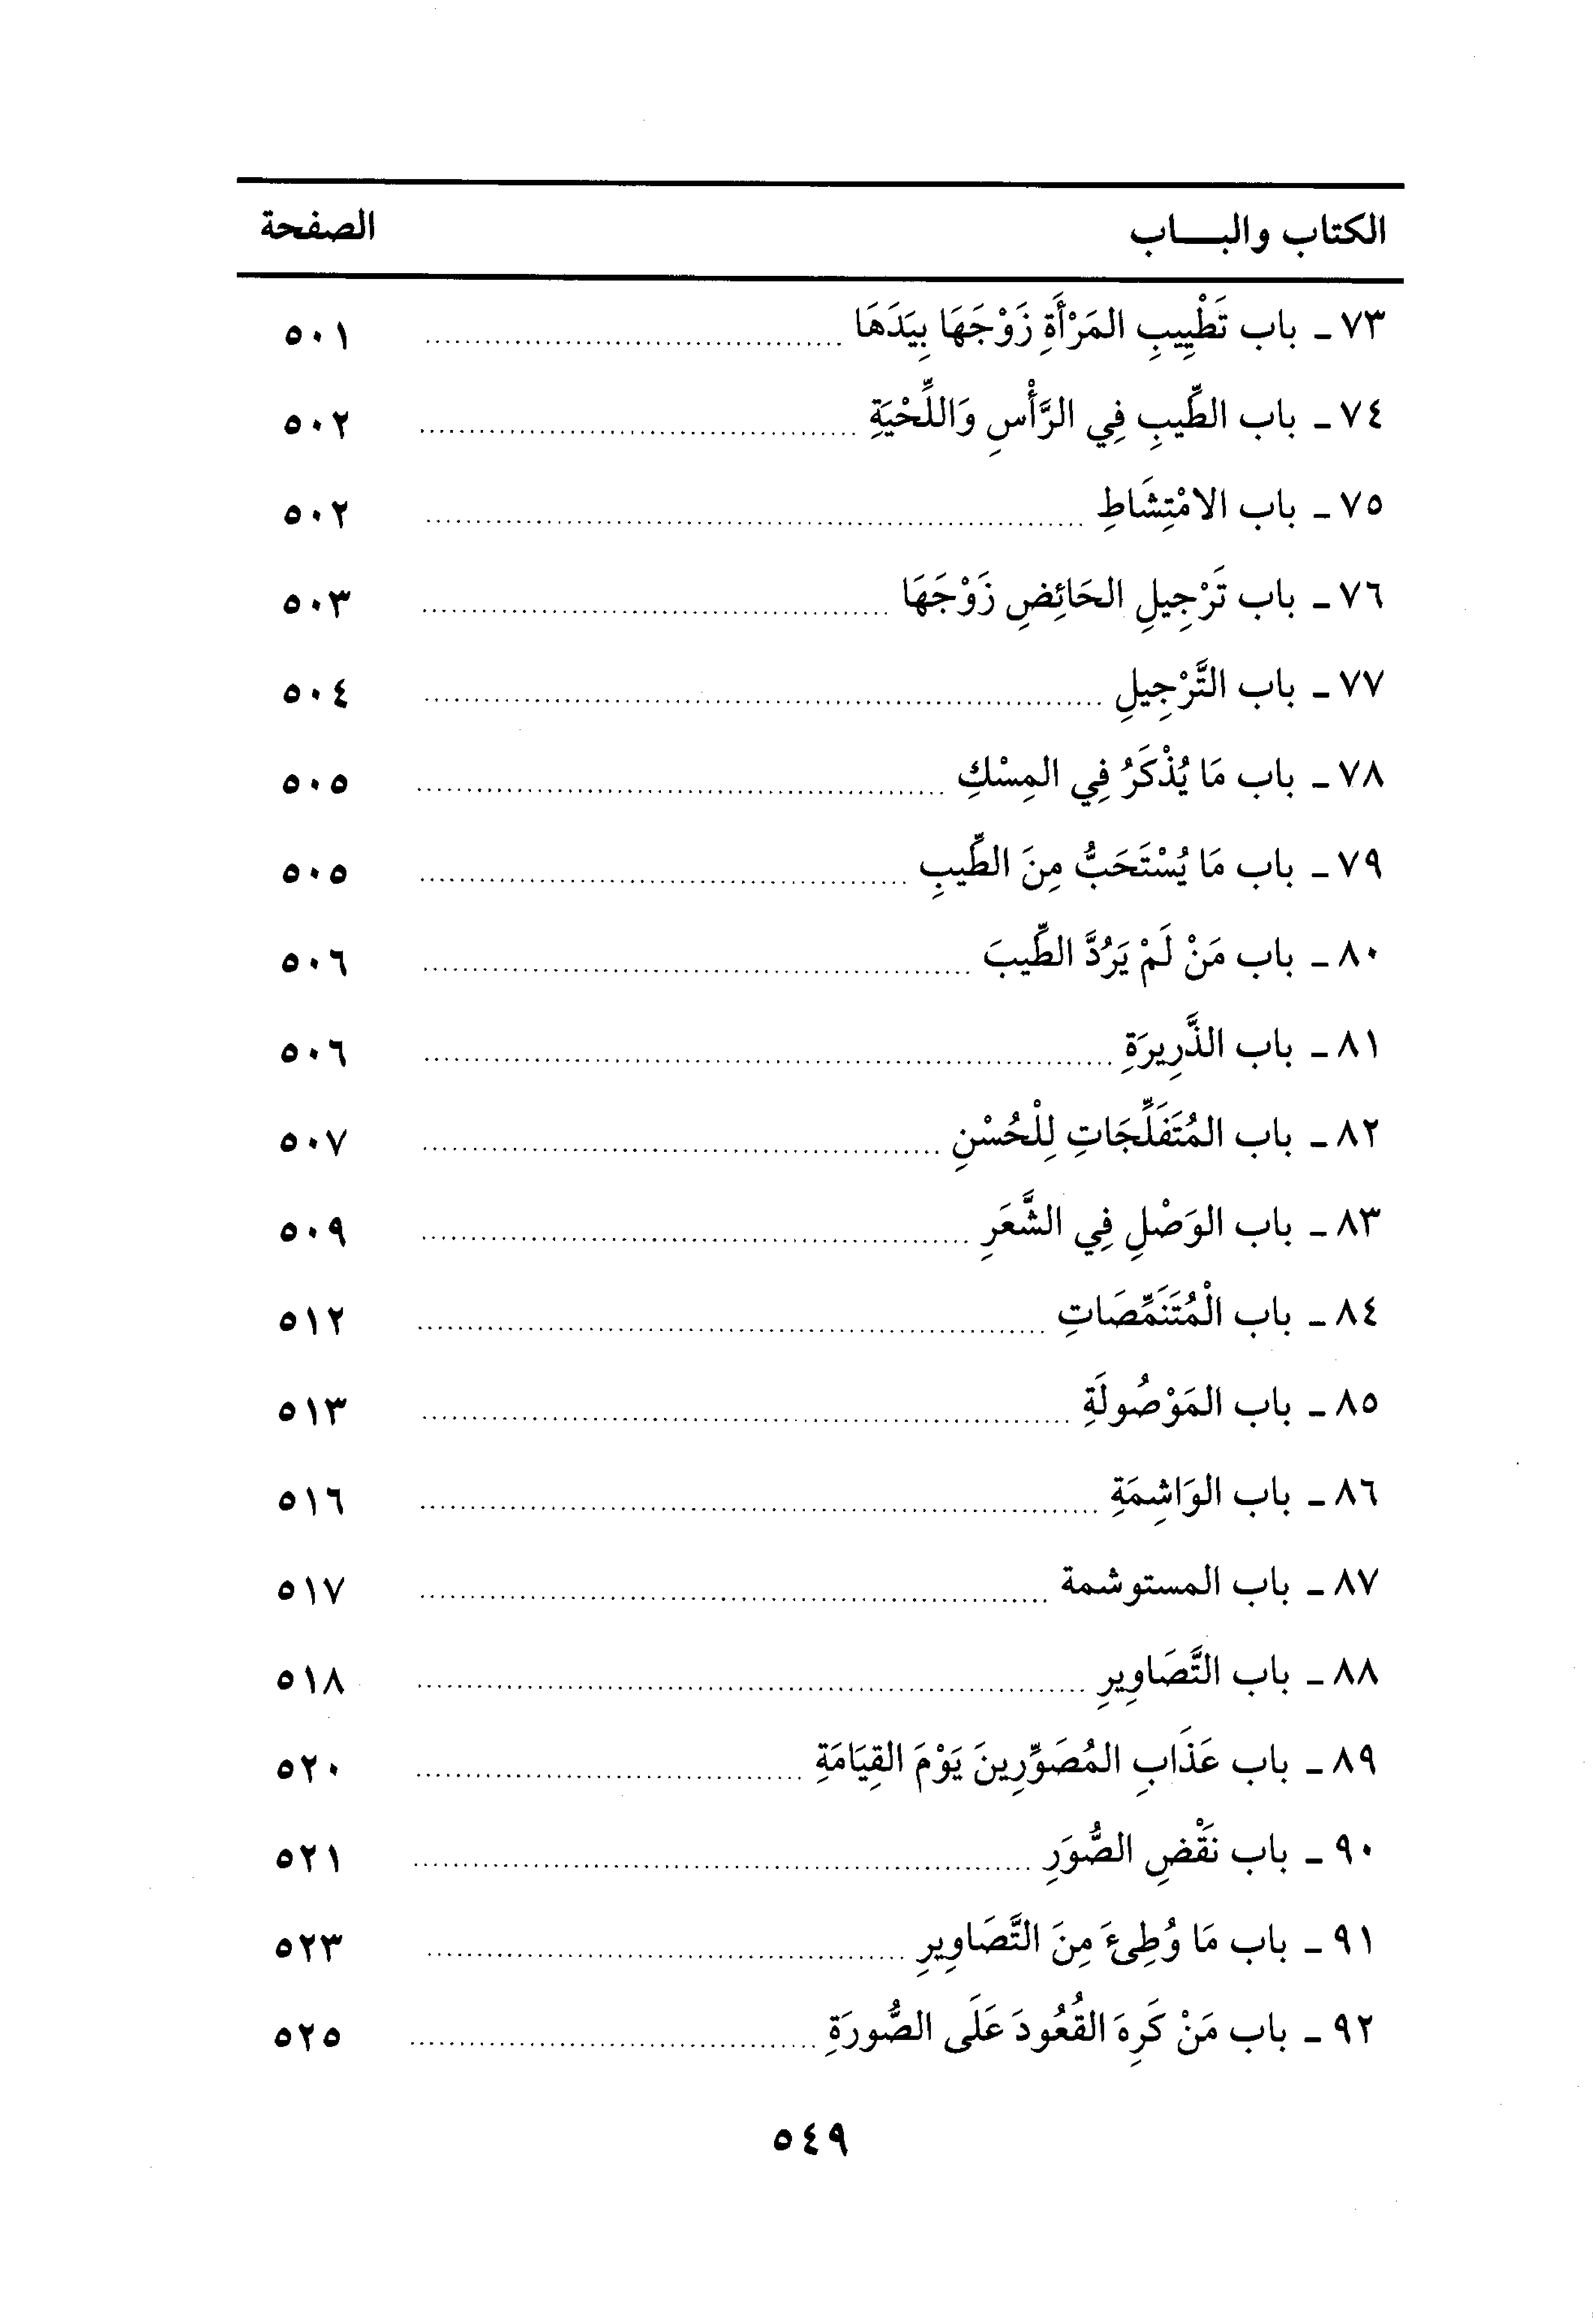 الكتاب والبـــاب الصفحة
٧٣ ـ باب تَطْيِيبِ المَرْأَةِ زَوْجَهَا بِيَدَهَا ........ ٥٠١
٧٤ ـ باب الطِّيبِ فِي الرَّأْسِ وَاللِّحْيَةِ ........ ٥٠٢
٧٥ ـ باب الامْتِشَاطِ ........ ٥٠٢
٧٦ ـ باب تَرْجِيلِ الحَائِضِ زَوْجَهَا ........ ٥٠٣
٧٧ ـ باب التَّرْجِيلِ ........ ٥٠٤
٧٨ ـ باب مَا يُذْكَرُ فِي المِسْكِ ........ ٥٠٥
٧٩ ـ باب مَا يُسْتَحَبُّ مِنَ الطِّيبِ ........ ٥٠٥
٨٠ ـ باب مَنْ لَمْ يَرُدَّ الطِّيبَ ........ ٥٠٦
٨١ ـ باب الذَّرِيرَةِ ........ ٥٠٦
٨٢ ـ باب المُتَفَلِّجَاتِ لِلْحُسْنِ ........ ٥٠٧
٨٣ ـ باب الوَصْلِ فِي الشَّعَرِ ........ ٥٠٩
٨٤ ـ باب الْمُتَنَمِّصَاتِ ........ ٥١٢
٨٥ ـ باب المَوْصُولَةِ ........ ٥١٣
٨٦ ـ باب الوَاشِمَةِ ........ ٥١٦
٨٧ ـ باب المستوشمة ........ ٥١٧
٨٨ ـ باب التَّصَاوِيرِ ........ ٥١٨
٨٩ ـ باب عَذَابِ المُصَوِّرِينَ يَوْمَ القِيَامَةِ ........ ٥٢٠
٩٠ ـ باب نَقْضِ الصُّوَرِ ........ ٥٢١
٩١ ـ باب مَا وُطِىءَ مِنَ التَّصَاوِيرِ ........ ٥٢٣
٩٢ ـ باب مَنْ كَرِهَ القُعُودَ عَلَى الصُّورَةِ ........ ٥٢٥
٥٤٩